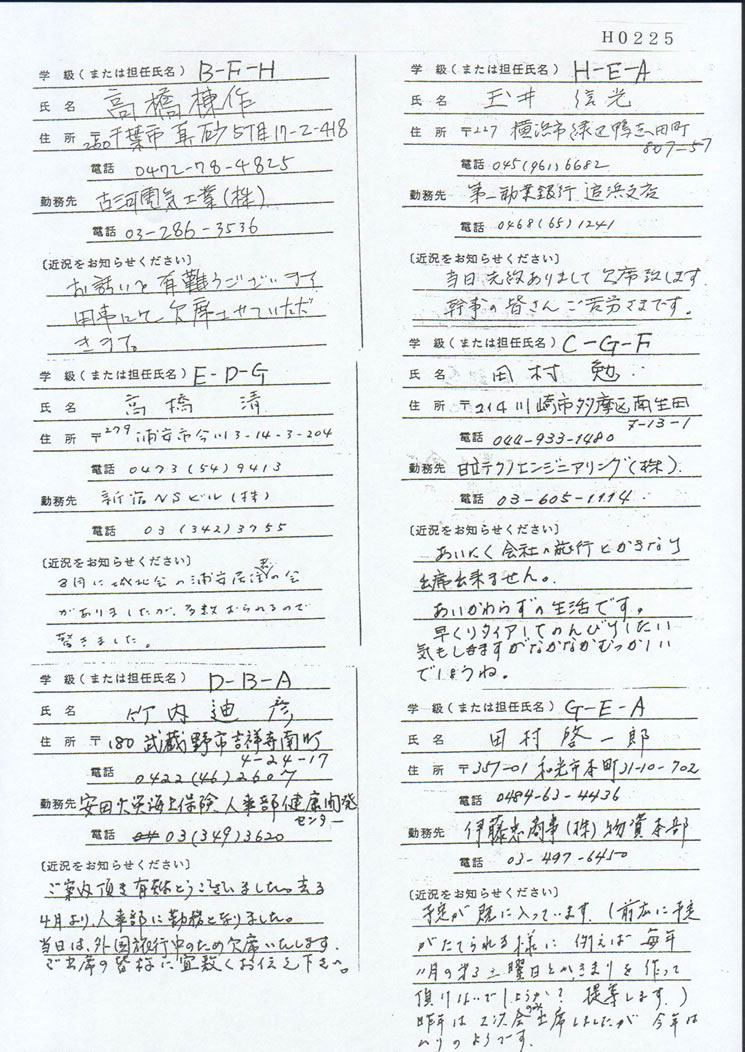 H0225
学 級(または担任氏名) B-F-H
氏 名 高橋棟作
住 所 〒260 千葉市真砂5丁目17-2-418
電話 0472-78-4825
勤務先 古河電気工業(株)
電話 03-286-3536
〔近況をお知らせください〕
お誘いを有難うございます
用事にて欠席させていただ
きます。
学 級(または担任氏名) E-D-G
氏 名 高橋 清
住 所 〒279 浦安市今川3-14-3-204
電話 0473(54)9413
勤務先 新宿NSビル(株)
電話 03(342)3755
〔近況をお知らせください〕
8月に城北会の浦安居住者の会
がありましたが、多数おられるので
驚きました。
学 級(または担任氏名) D-B-A
氏 名 竹内迪彦
住 所 〒180 武蔵野市吉祥寺南町
4-24-17
電話 0422(46)2607
勤務先 安田火災海上保険 人事部健康開発
センター
電話 03(349)3620
〔近況をお知らせください〕
ご案内頂き有難とうございました。去る
4月より、人事部に勤務となりました。
当日は、外国旅行中のため欠席いたします。
ご出席の皆様に宜敷くお伝え下さい。
学 級(または担任氏名) H-E-A
氏 名 玉井 信光
住 所 〒227 横浜市緑区鴨志田町
807-57
電話 045(961)6682
勤務先 第一勧業銀行 追浜支店
電話 0468(65)1241
〔近況をお知らせください〕
当日先約ありまして欠席致します。
幹事の皆さんご苦労さまです。
学 級(または担任氏名) C-G-F
氏 名 田村 勉
住 所 〒214 川崎市多摩区南生田
7-13-1
電話 044-933-1480
勤務先 日立テクノエンジニアリング(株)
電話 03-605-1114
〔近況をお知らせください〕
あいにく会社の旅行とかさなり
出席出来ません。
あいかわらずの生活です。
早くリタイアしてのんびりしたい
気もしますがなかなかむつかしい
でしょうね。
学 級(または担任氏名) G-E-A
氏 名 田村啓一郎
住 所 〒357-01 和光市本町31-10-702
電話 0484-63-4436
勤務先 伊藤忠商事(株)物資本部
電話 03-497-6450
〔近況をお知らせください〕
予定が既に入っています。(前広に予定
がたてられる様に 例えば 毎年
11月の第3土曜日とか、きまりを作って
頂けないでしょうか? 提導します。)
昨年は2次会のみ出席しましたが 今年は
ムリのようです。